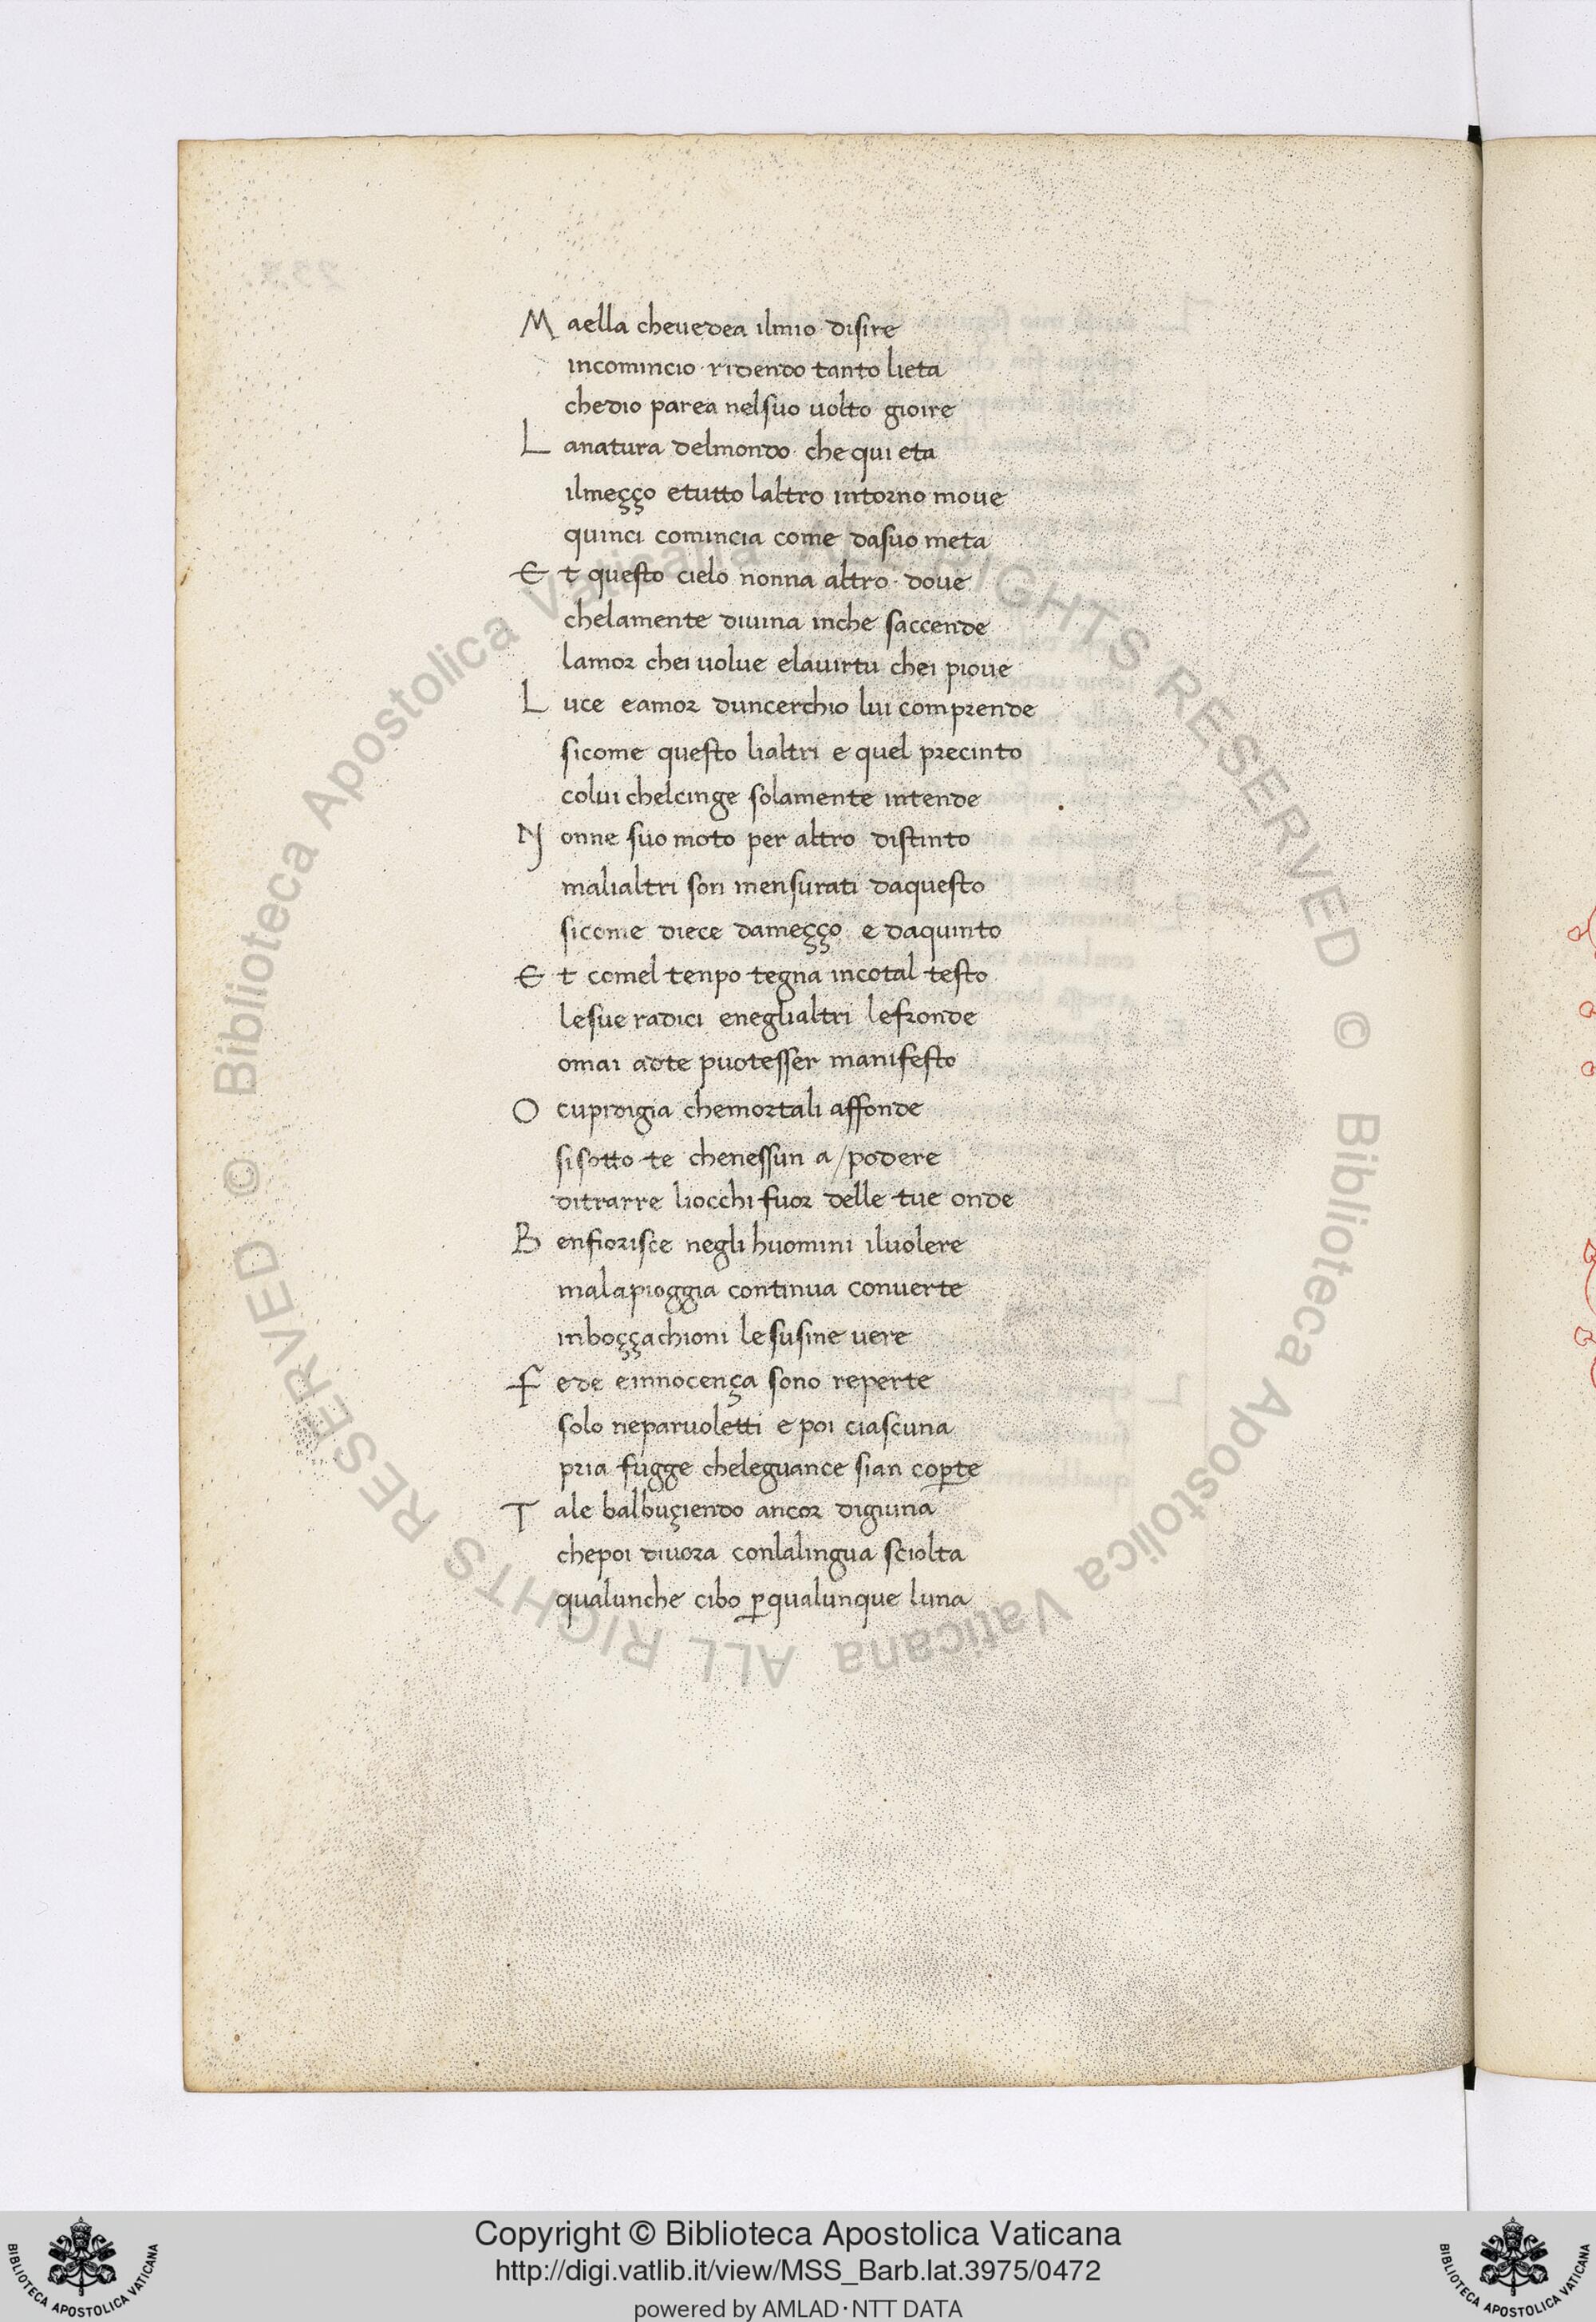 M aella cheuedea ilmio disire
incomincio ridendo tanto lieta
chedio parea nelsuo uolto gioire
L anatura delmondo che qui eta
ilmeçço etutto laltro intorno moue
quinci comincia come dasuo meta
E t questo cielo nonna altro doue
chelamente diuina inche saccende
lamor chei uolue elauirtu chei pioue
L uce eamor duncerchio lui comprende
sicome questo lialtri e quel precinto
colui chelcinge solamente intende
N onne suo moto per altro distinto
malialtri son mensurati daquesto
sicome diece dameçço e daquinto
E t comel tenpo tegna incotal testo
lesue radici eneglialtri lefronde
omai adte puotesser manifesto
O cupidigia chemortali affonde
sisotto te chenessun a/podere
ditrarre liocchi fuor delle tue onde
B enfiorisce negli huomini iluolere
malapioggia continua conuerte
inboççachioni lesusine uere
F ede einnocença sono reperte
solo neparuoletti e poi ciascuna
pria fugge cheleguance sian coꝑte
T ale balbuçiendo ancor digiuna
chepoi diuora conlalingua sciolta
qualunche cibo ꝑqualunque luna
© Biblioteca Apostolica Vaticana ALL RIGHTS RESERVED © Biblioteca Apostolica Vaticana ALL RIGHTS RESERVED
Copyright © Biblioteca Apostolica Vaticana
http://digi.vatlib.it/view/MSS_Barb.lat.3975/0472
powered by AMLAD·NTT DATA
BIBLIOTECA APOSTOLICA VATICANA
BIBLIOTECA APOSTOLICA VATICANA